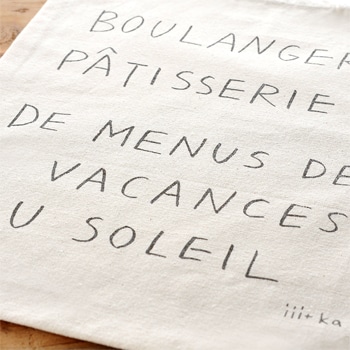 BOULANGER
PÂTISSERIE
DE MENUS DE
VACANCES
U SOLEIL
iii+ ka